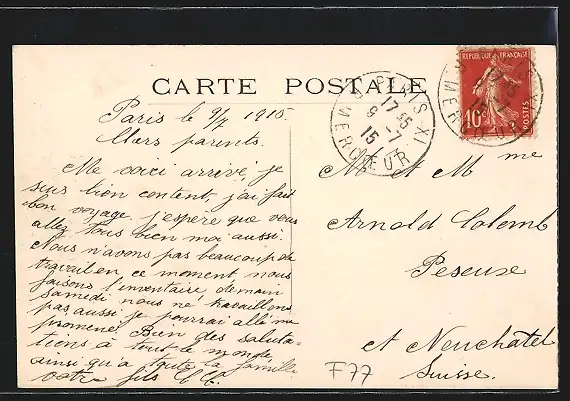 CARTE POSTALE
Paris le 9/7 1915
Chers parents.
Me voici arrivé, je
suis bien content, j'ai fait
bon voyage j'espère que vous
allez tous bien moi aussi.
Nous n'avons pas beaucoup de
travail en ce moment nous
faisons l'inventaire demain
samedi nous ne travaillons
pas aussi je pourrai allé me
promener Bien des saluta-
tions à tout le monde
ainsi qu'a toute la famille
votre fils
PARIS XI
17 45
9 - 7
15
MERCŒUR
REPUBLIQUE FRANÇAISE
10c
POSTES
M et Mme
Arnold Colomb
Peseux
et Neuchatel
Suisse.
F77